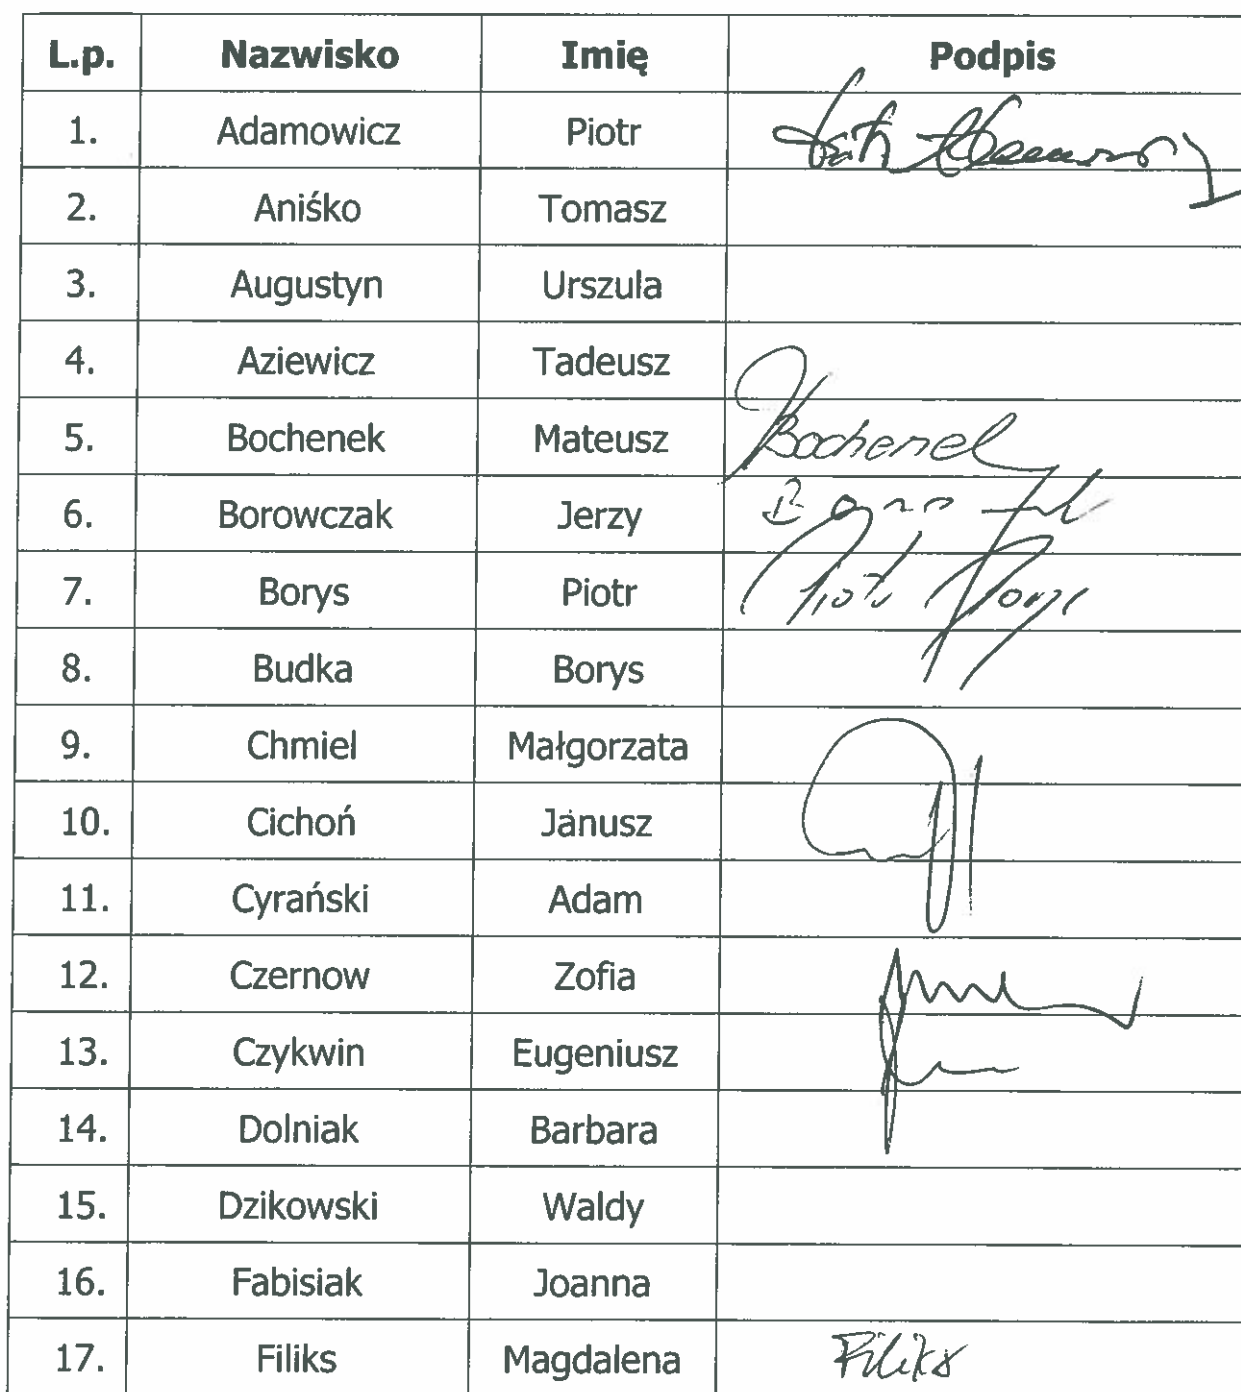 L.p. Nazwisko Imię Podpis
1. Adamowicz Piotr
2. Aniśko Tomasz
3. Augustyn Urszula
4. Aziewicz Tadeusz
5. Bochenek Mateusz Bochenek
6. Borowczak Jerzy
7. Borys Piotr Piotr Borys
8. Budka Borys
9. Chmiel Małgorzata
10. Cichoń Janusz
11. Cyrański Adam
12. Czernow Zofia
13. Czykwin Eugeniusz
14. Dolniak Barbara
15. Dzikowski Waldy
16. Fabisiak Joanna
17. Filiks Magdalena Filiks